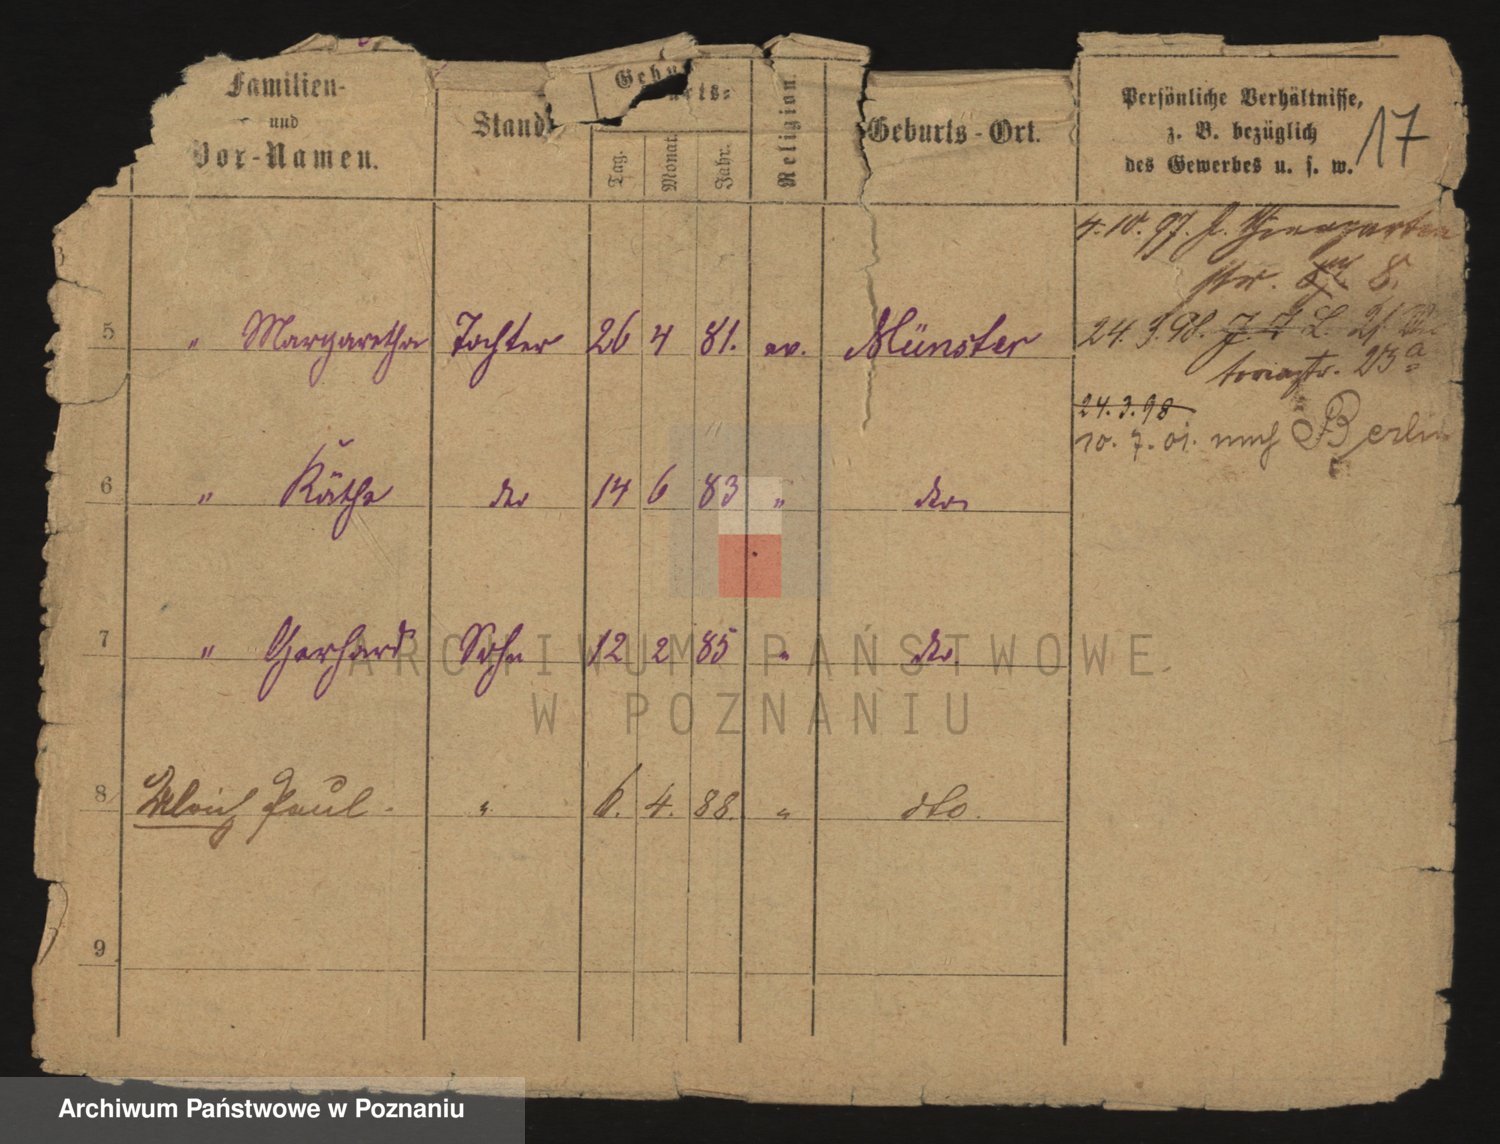 Familien-
und
Vor-Namen.
Stand
Geburts-
Tag.
Monat.
Jahr.
Religion
Geburts-Ort.
Persönliche Verhältnisse,
z. B. bezüglich
des Gewerbes u. s. w.
17
4.10.97. Thiergarten
str. 8.
5 " Margaretha Tochter 26 4 81. ev. Münster
24.3.98. L. Vic
toriastr. 23a
24.3.98
10.7.01. nach Berlin
6 " Käthe dto 14 6 83 " dto
7 " Gerhard Sohn 12 2 85 " dto.
8 Ulrich Paul. " 6. 4. 88. " dto.
9
ARCHIWUM PAŃSTWOWE
W POZNANIU
Archiwum Państwowe w Poznaniu